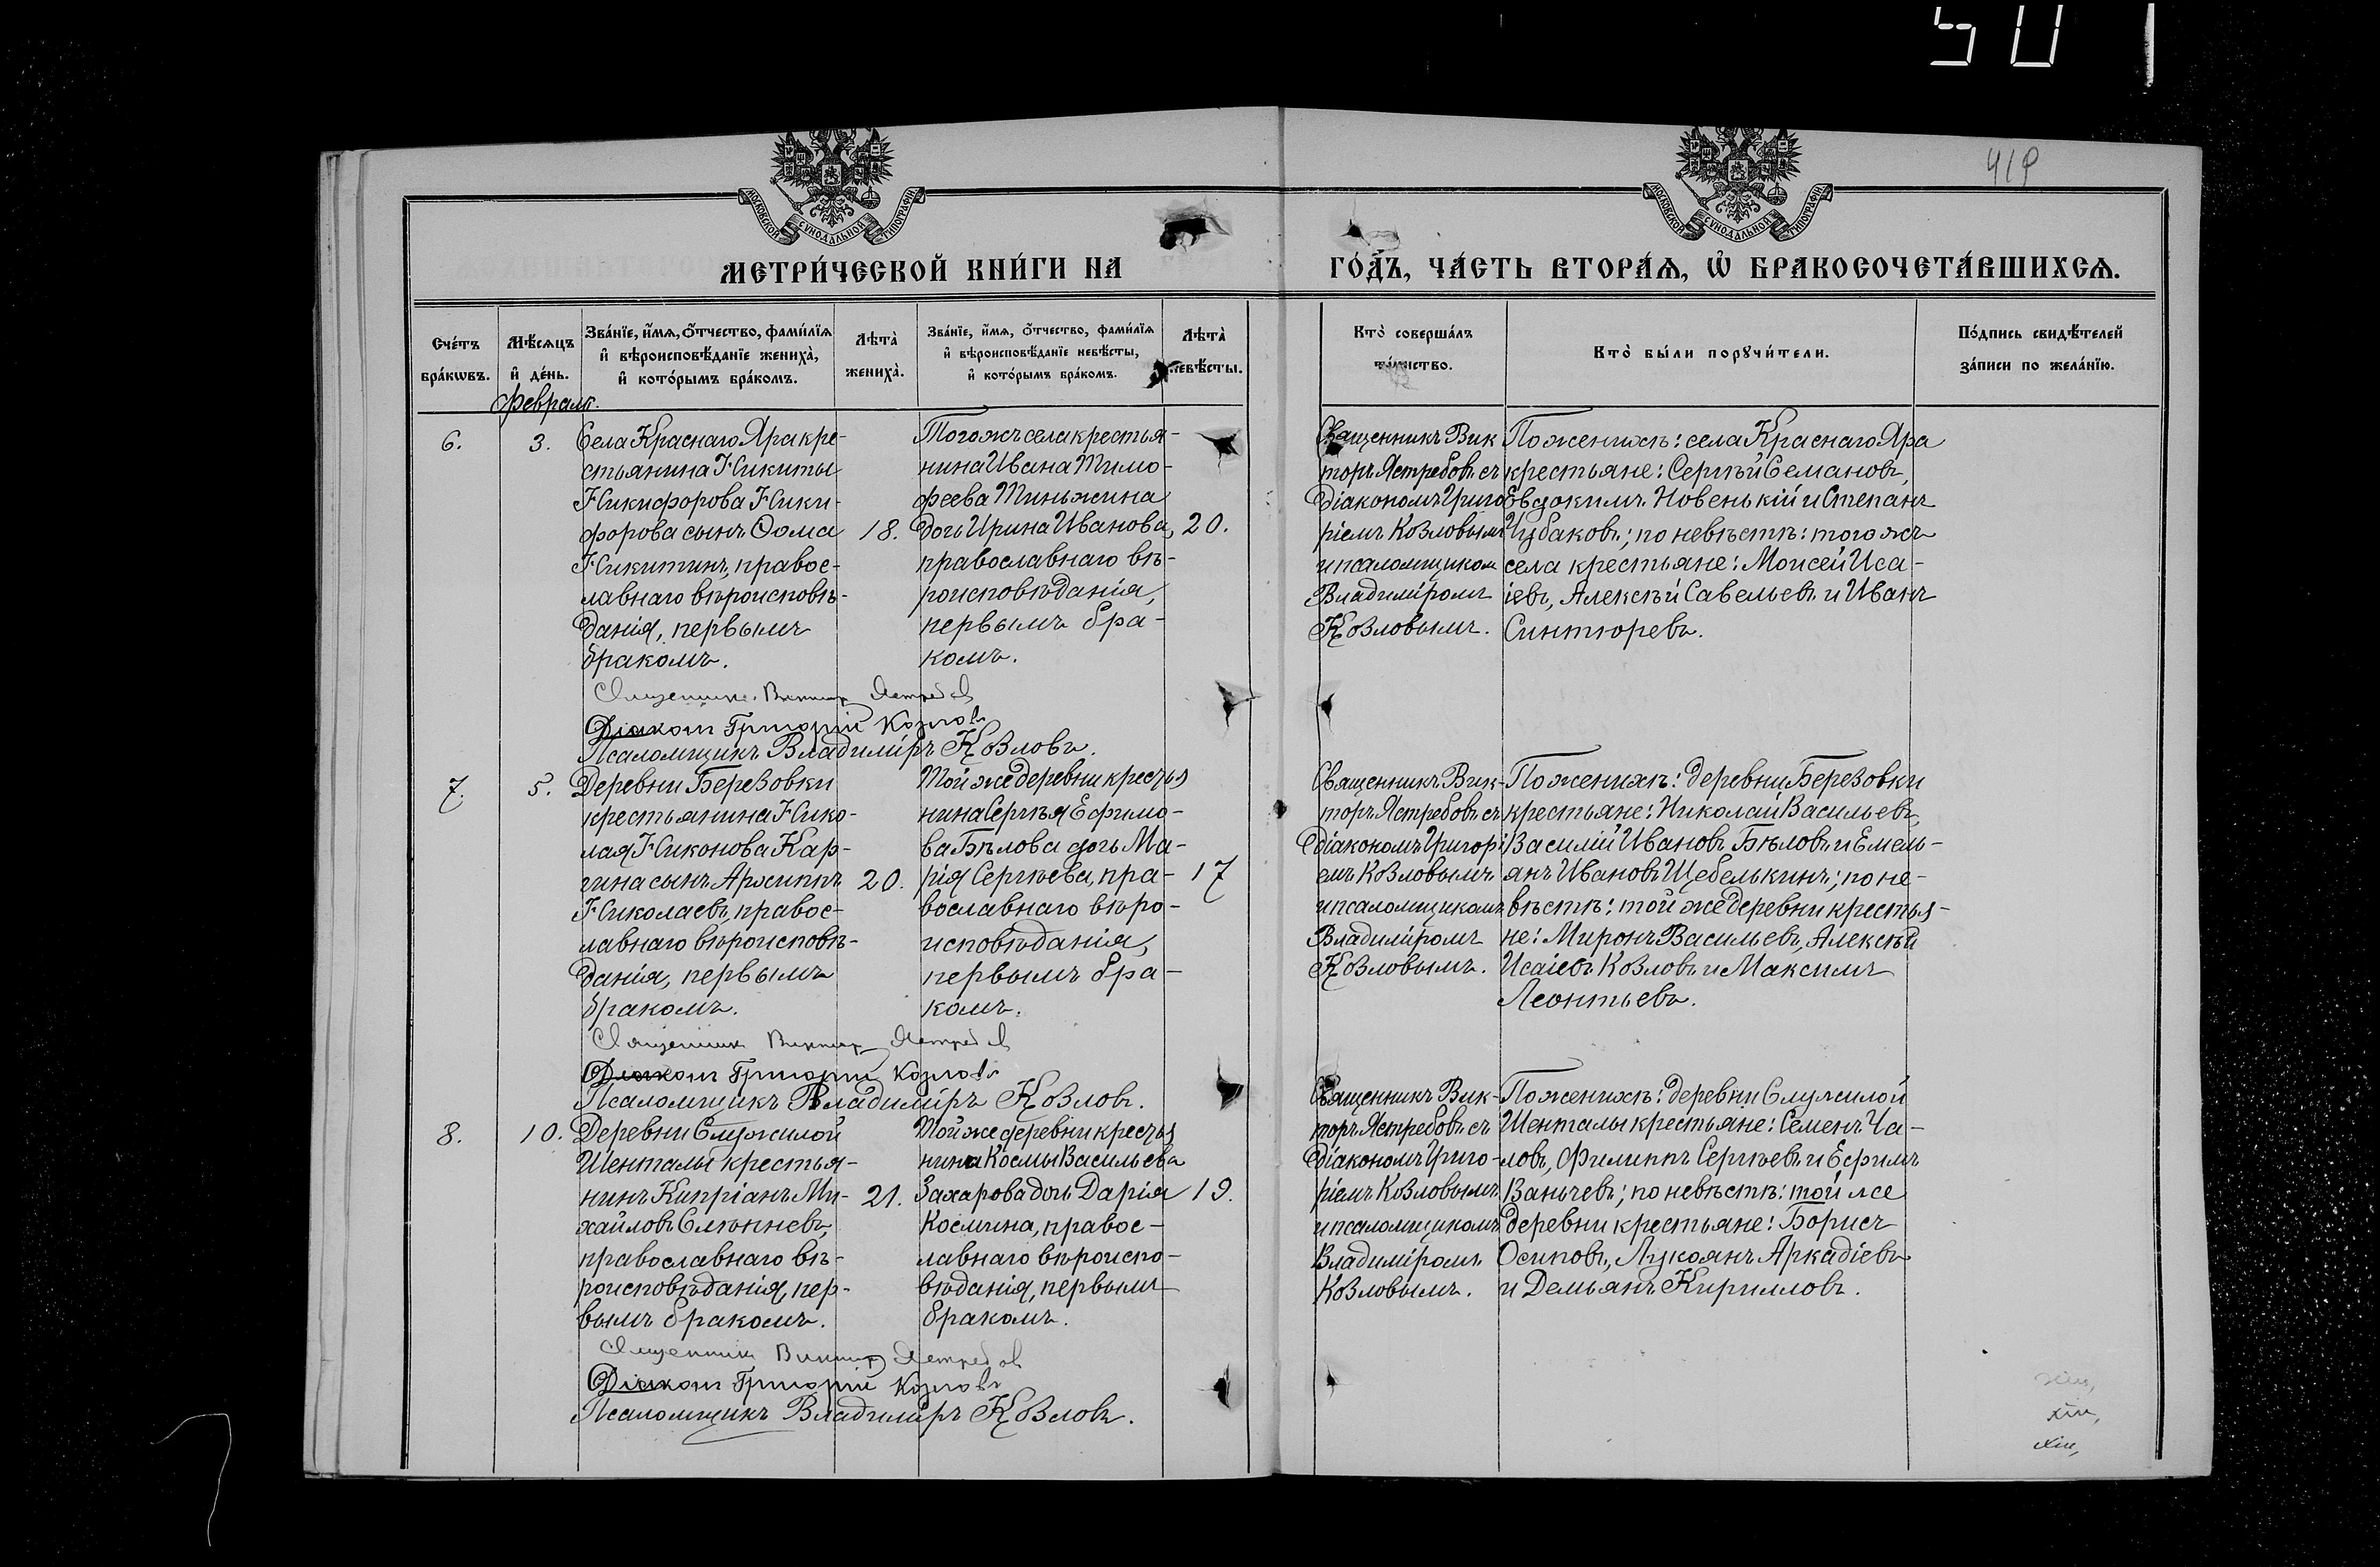 501
419
МОСКОВСКОЙ СѴНОДАЛЬНОЙ ТИПОГРАФІИ
МОСКОВСКОЙ СѴНОДАЛЬНОЙ ТИПОГРАФІИ
МЕТРИ́ЧЕСКОЙ КНИ́ГИ НА
ГО́ДЪ, ЧА́СТЬ ВТОРА́Ѧ, Ѽ БРАКОСОЧЕТА́ВШИХСѦ.
Сче́тъ
бра́кѡвъ.
Мѣ́сѧцъ
и҆ де́нь.
Зва́нїе, и҆́мѧ, ѻ҆́тчество, фами́лїѧ
и҆ вѣроисповѣ́данїе жениха̀,
и҆ кото́рымъ бра́комъ.
Лѣта̀
жениха̀.
Зва́нїе, и҆́мѧ, ѻ҆́тчество, фами́лїѧ
и҆ вѣроисповѣ́данїе невѣ́сты,
и҆ кото́рымъ бра́комъ.
Лѣта̀
невѣ́сты.
Кто̀ соверша́лъ
та́инство.
Кто̀ бы́ли порꙋчи́тели.
По́дпись свидѣ́телей
за́писи по жела́нїю.
Февраль.
6.
3.
Села Краснаго Яра кре-
стьянина Никиты
Никифорова Ники-
форова сынъ Ѳома
Никитинъ, правос-
лавнаго вѣроисповѣ-
данія, первымъ
бракомъ.
18.
Тогожъ села крестья-
нина Ивана Тимо-
феева Тиньжина
дочь Ирина Иванова,
православнаго вѣ-
роисповѣданія,
первымъ бра-
комъ.
20.
Священникъ Вик
торъ Ястребовъ съ
діакономъ Григо
ріемъ Козловымъ
и псаломщиком
Владиміромъ
Козловымъ.
По женихѣ: села Краснаго Яра
крестьяне: Сергѣй Семановъ,
Евдокимъ Новенькій и Степанъ
Чубаковъ; по невѣстѣ: того жъ
села крестьяне: Моисей Иса-
іевъ, Алексѣй Савельевъ и Иванъ
Синтюревъ.
Священникъ Викторъ Ястребовъ
Діаконъ Григорій Козловъ
Псаломщикъ Владиміръ Козловъ.
7.
5.
Деревни Березовки
крестьянина Нико-
лая Никонова Кар-
гина сынъ Архиппъ
Николаевъ, правос-
лавнаго вѣроисповѣ-
данія, первымъ
бракомъ.
20.
Той же деревни крестья
нина Сергѣя Ефимо-
ва Бѣлова дочь Ма-
рія Сергѣева, пра-
вославнаго вѣро-
исповѣданія,
первымъ бра-
комъ.
17
Священникъ Вик-
торъ Ястребовъ съ
діакономъ Григорі
емъ Козловымъ
и псаломщикомъ
Владиміромъ
Козловымъ.
По женихѣ: деревни Березовки
крестьяне: Николай Васильевъ,
Василій Ивановъ Бѣловъ и Емель-
янъ Ивановъ Щебелькинъ; по не-
вѣстѣ: той же деревни крестья-
не: Миронъ Васильевъ, Алексѣй
Исаіевъ Козловъ и Максимъ
Леонтьевъ.
Священникъ Викторъ Ястребовъ
Діаконъ Григорій Козловъ
Псаломщикъ Владиміръ Козловъ.
8.
10.
Деревни Служилой
Шенталы крестья-
нинъ Кипріанъ Ми-
хайловъ Слюняевъ,
православнаго вѣ-
роисповѣданія, пер-
вымъ бракомъ.
21.
Той же деревни крестья
нина Космы Васильева
Захарова дочь Дарія
Космина, правос-
лавнаго вѣроиспо-
вѣданія, первымъ
бракомъ.
19.
Священникъ Вик-
торъ Ястребовъ съ
діакономъ Григо-
ріемъ Козловымъ
и псаломщикомъ
Владиміромъ
Козловымъ.
По женихѣ: деревни Служилой
Шенталы крестьяне: Семенъ Ча-
ловъ, Филиппъ Сергѣевъ и Ефимъ
Ванычевъ; по невѣстѣ: той же
деревни крестьяне: Борисъ
Осиповъ, Лукоянъ Аркадіевъ
и Демьянъ Кирилловъ.
Священникъ Викторъ Ястребовъ
Діаконъ Григорій Козловъ
Псаломщикъ Владиміръ Козловъ.